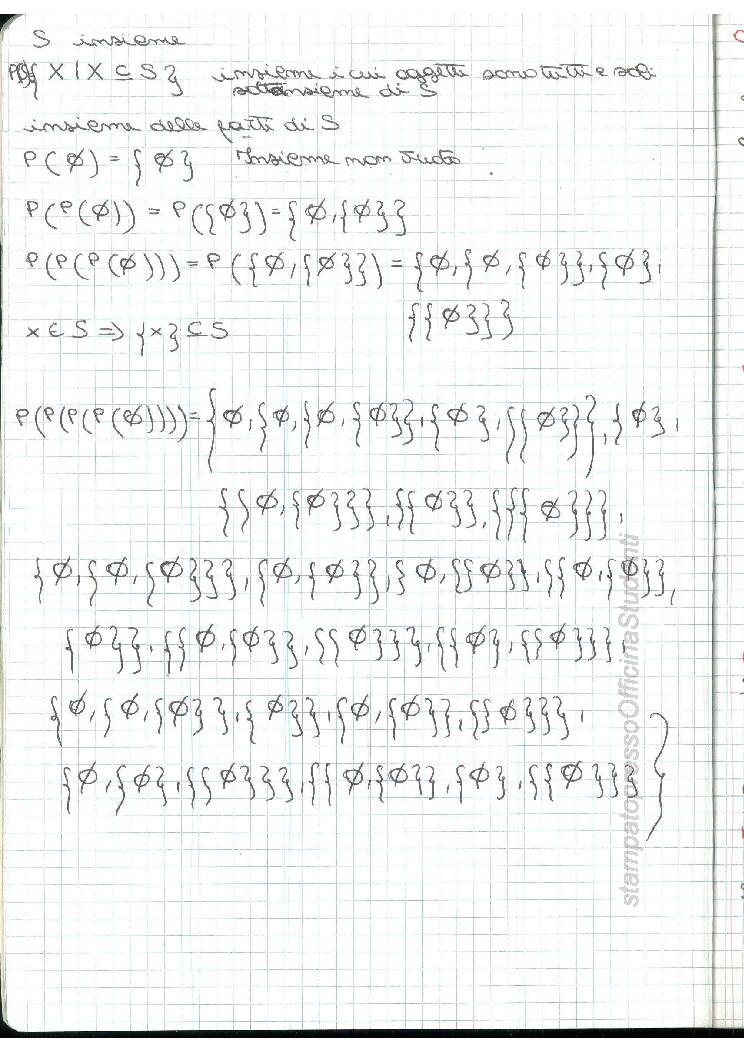 S insieme
P(S){ X | X ⊆ S } insieme i cui oggetti sono tutti e soli
sottoinsieme di S
insieme delle parti di S
P(∅) = { ∅ } Insieme non vuoto
P(P(∅)) = P({∅}) = {∅, {∅}}
P(P(P(∅))) = P({∅, {∅}}) = {∅, {∅, {∅}}, {∅},
{{∅}}}
x ∈ S ⇒ {x} ⊆ S
P(P(P(P(∅)))) = {∅, {∅, {∅, {∅}}, {∅}, {{∅}}}, {∅},
{{∅, {∅}}}, {{∅}}, {{{∅}}},
{∅, {∅, {∅}}}, {∅, {∅}}, {∅, {{∅}}}, {{∅, {∅}},
{∅}}, {{∅, {∅}}, {{∅}}}, {{∅}, {{∅}}},
{∅, {∅, {∅}}, {∅}}, {∅, {∅}}, {{∅}}},
{∅, {∅}, {{∅}}}, {{∅, {∅}}, {∅}, {{∅}}} }
stampatopressoOfficinaStudenti